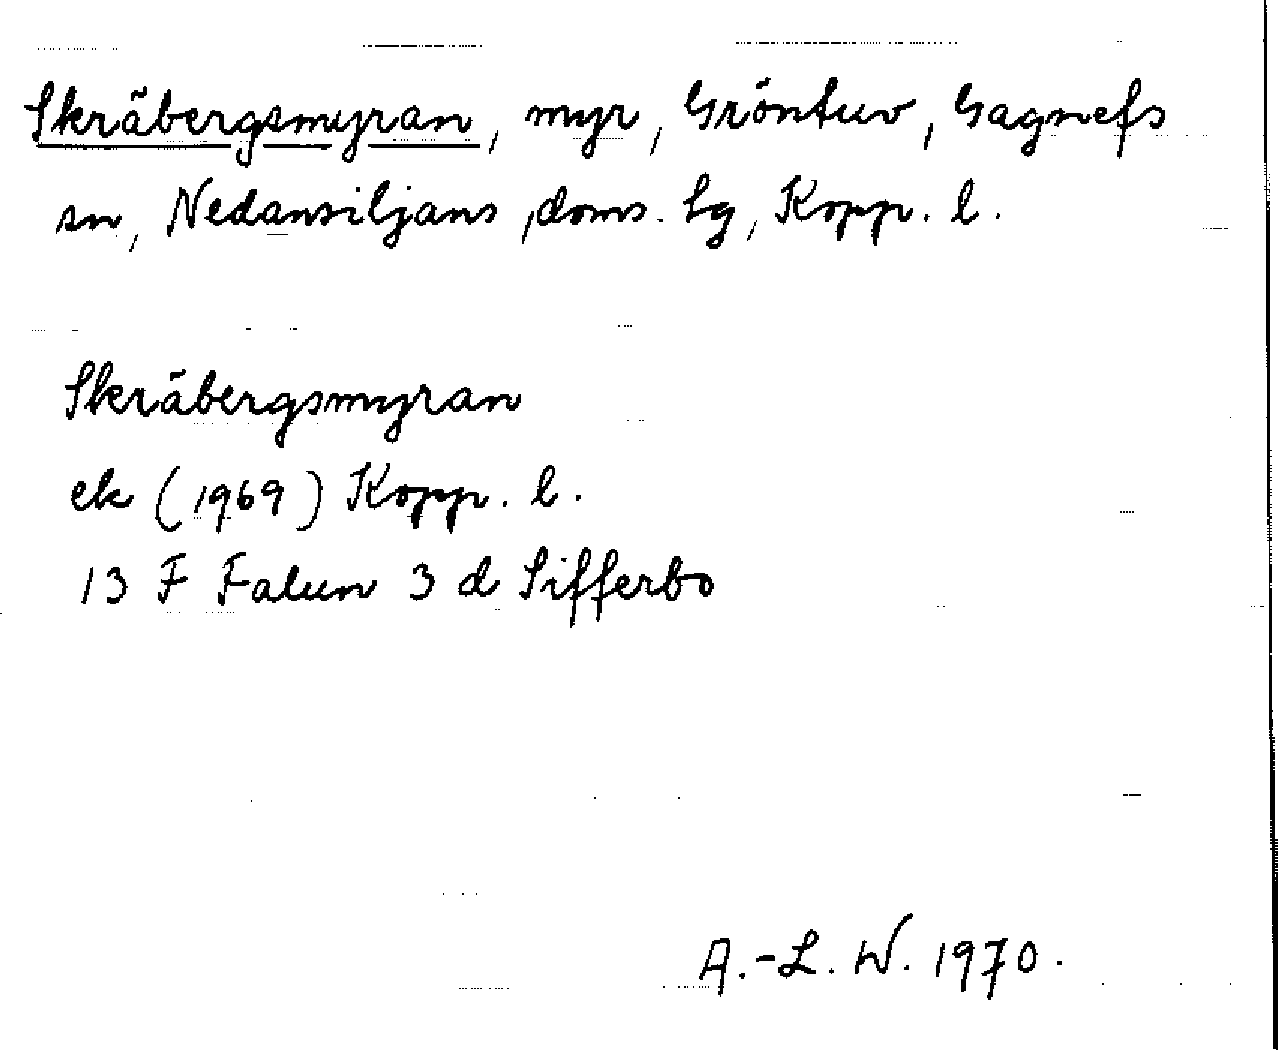 Skräbergsmyran, myr, Gröntuv, Gagnefs
sn, Nedansiljans doms. lg, Kopp. l.
Skräbergsmyran
ek (1969) Kopp. l.
13 F Falun 3 d Sifferbo
A.-L. W. 1970.